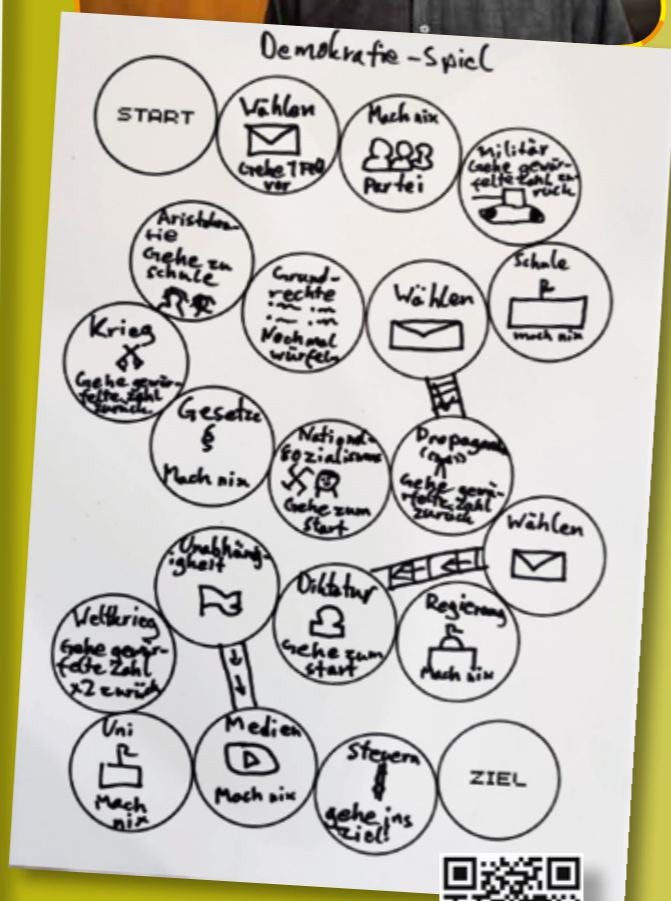 Demokratie-Spiel
START
Wählen
Gehe 1 Feld
vor
Mach nix
Partei
Militär
Gehe gewür-
felte Zahl zu-
rück
Schule
mach nix
Wählen
Grund-
rechte
Nochmal
würfeln
Aristokra-
tie
Gehe zu
schule
Krieg
Gehe gewür-
felte Zahl
zurück
Gesetze
§
Mach nix
National-
sozialismus
Gehe zum
Start
Propaganda
Gehe gewü-
rfelte Zahl
zurück
Wählen
Regierung
Mach nix
Diktatur
Gehe zum
start
Unabhäng-
igkeit
Weltkrieg
Gehe gewür-
felte Zahl
x2 zurück
Uni
Mach
nix
Medien
Mach nix
Steuern
gehe ins
Ziel!
ZIEL